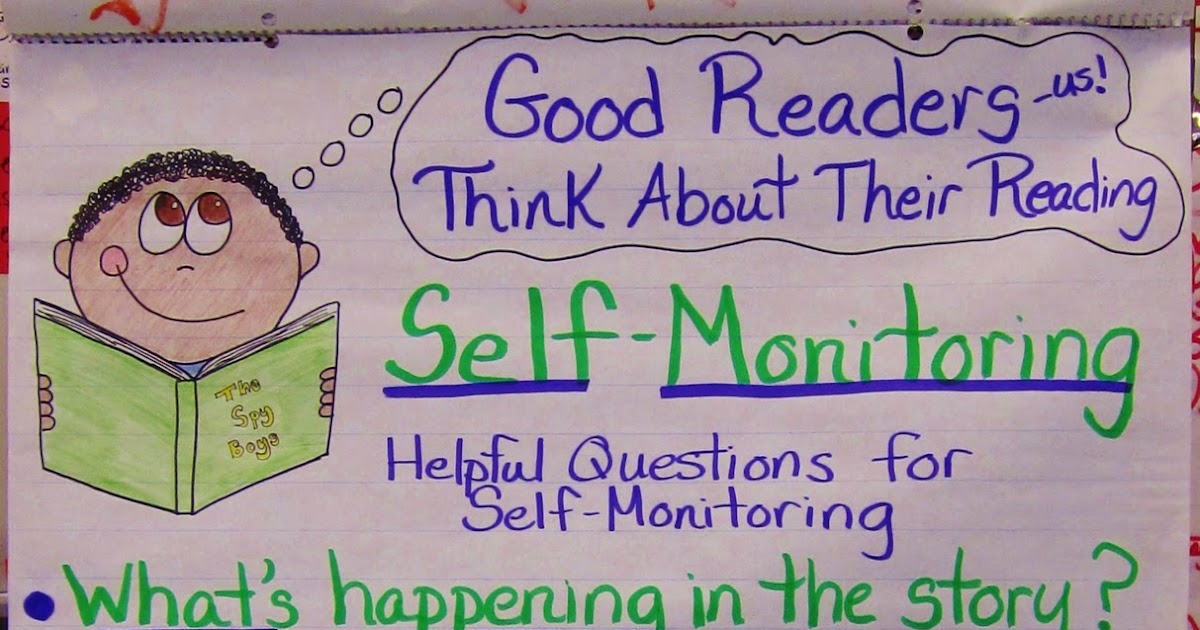 Good Readers -us!
Think About Their Reading
Self-Monitoring
The
Spy
Boys
Helpful Questions for
Self-Monitoring
• What's happening in the story?